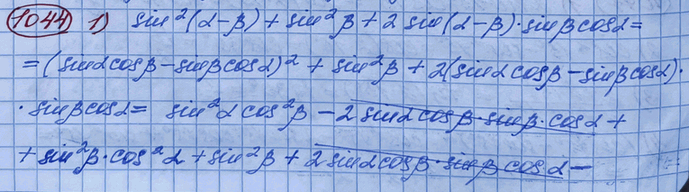 1044 1) sin²(α-β) + sin²β + 2 sin(α-β)·sinβcosα =
= (sinαcosβ - sinβcosα)² + sin²β + 2(sinαcosβ - sinβcosα)·
· sinβcosα = sin²αcos²β - 2 sinαcosβ·sinβ·cosα +
+ sin²β·cos²α + sin²β + 2 sinαcosβ·sinβcosα -